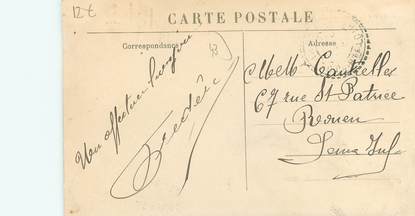 12€
CARTE POSTALE
Correspondance
Adresse
Un affectueux bonjour
Frédéric
Melle
67 rue St Patrice
Rouen
Seine Inf